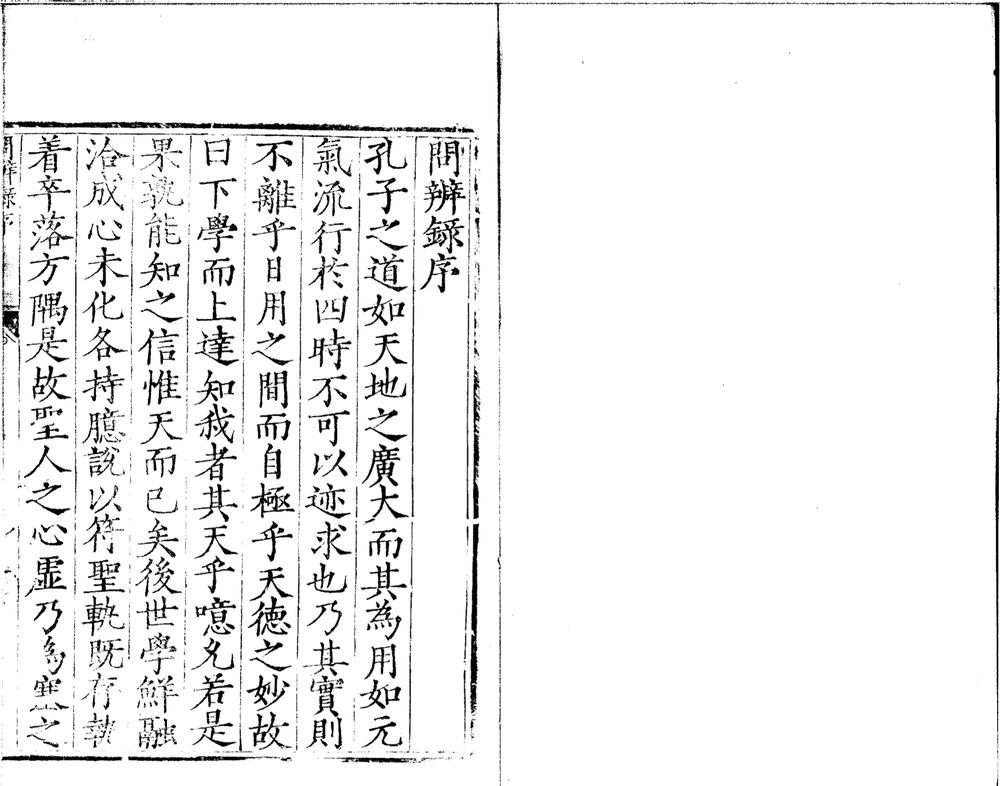 問辨錄序
孔子之道如天地之廣大而其為用如元
氣流行於四時不可以迹求也乃其實則
不離乎日用之間而自極乎天德之妙故
曰下學而上達知我者其天乎噫夫若是
果孰能知之信惟天而已矣後世學鮮融
洽成心未化各持臆說以符聖軌既存執
着卒落方隅是故聖人之心虛乃為窻之
問辨錄序